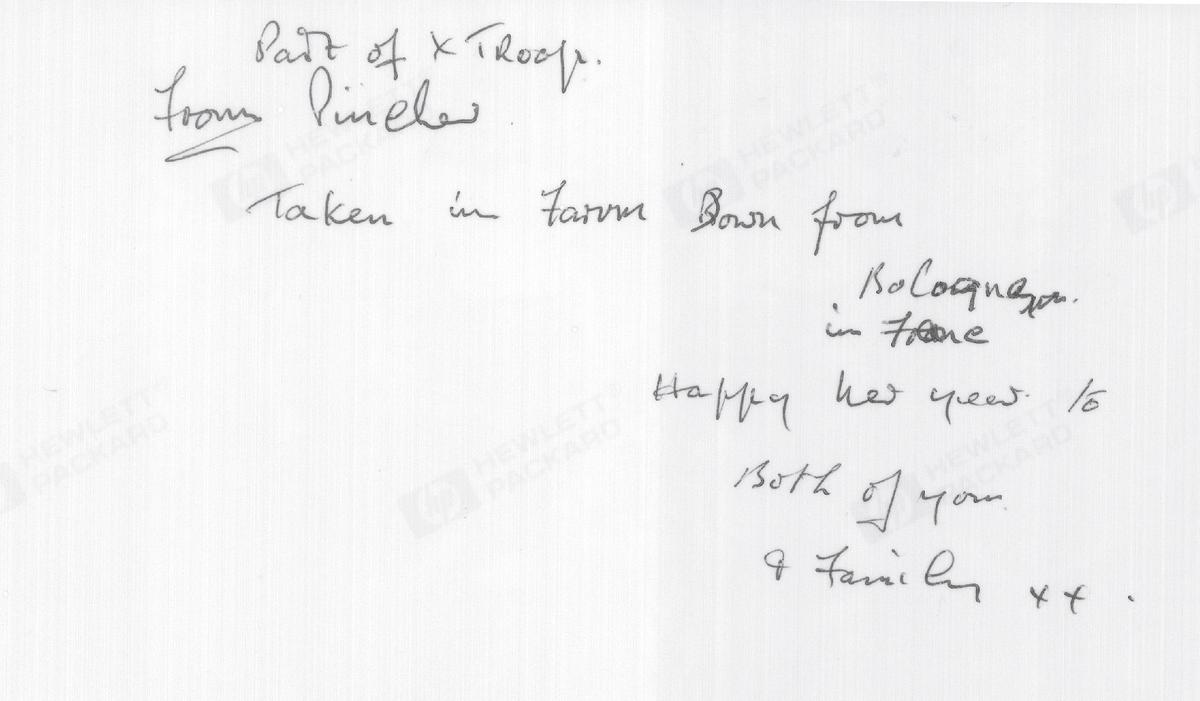 Part of X Troop.
From Pincher
Taken in Farm Down from
in
Happy New year to
Both of you
& Family xx.
HEWLETT PACKARD
HEWLETT PACKARD
HEWLETT PACKARD
HEWLETT PACKARD
HEWLETT PACKARD